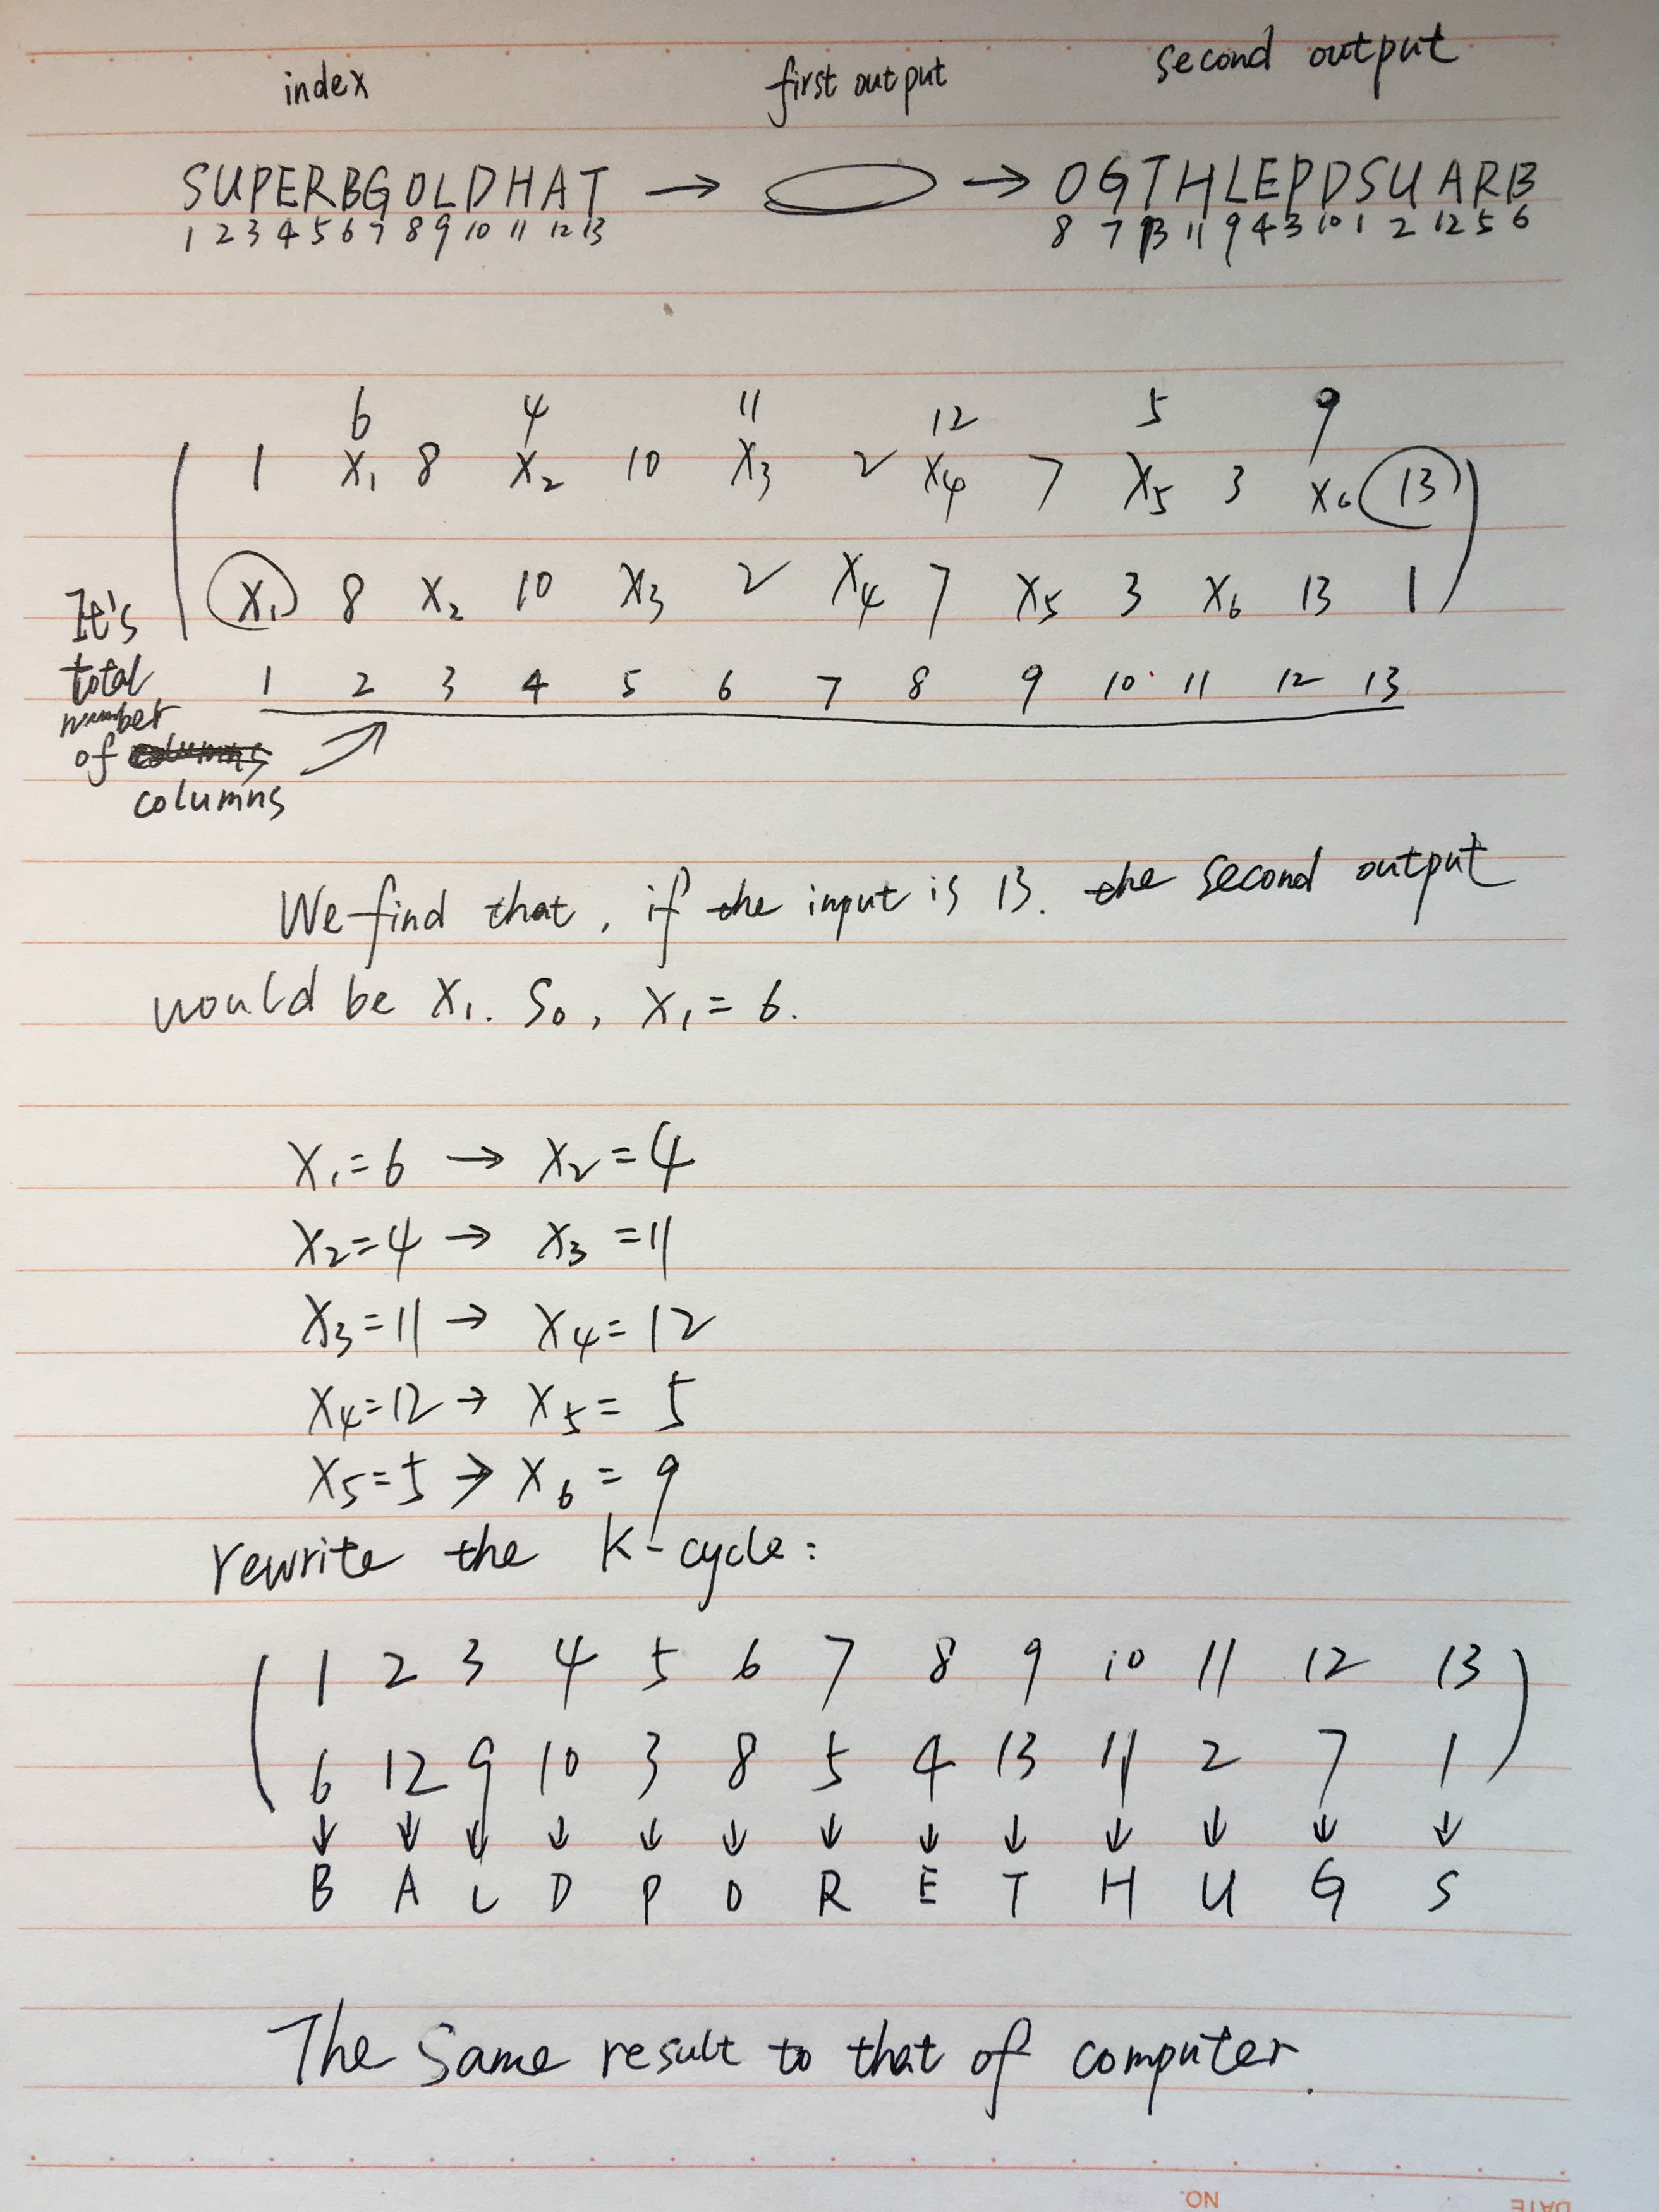 index first output second output
SUPERBGOLDHAT → → OGTHLEPDSUARB
1 2 3 4 5 6 7 8 9 10 11 12 13 8 7 13 11 9 4 3 10 1 2 12 5 6
6 4 11 12 5 9
( 1 X1 8 X2 10 X3 2 X4 7 X5 3 X6 13 )
X1 8 X2 10 X3 2 X4 7 X5 3 X6 13 1
1 2 3 4 5 6 7 8 9 10 11 12 13
It's
total
number
of
columns
We find that, if the input is 13. the second output
would be X1. So, X1 = 6.
X1 = 6 → X2 = 4
X2 = 4 → X3 = 11
X3 = 11 → X4 = 12
X4 = 12 → X5 = 5
X5 = 5 → X6 = 9
rewrite the k-cycle:
( 1 2 3 4 5 6 7 8 9 10 11 12 13 )
6 12 9 10 3 8 5 4 13 11 2 7 1
↓ ↓ ↓ ↓ ↓ ↓ ↓ ↓ ↓ ↓ ↓ ↓ ↓
B A L D P O R E T H U G S
The Same result to that of computer.
NO.
DATE